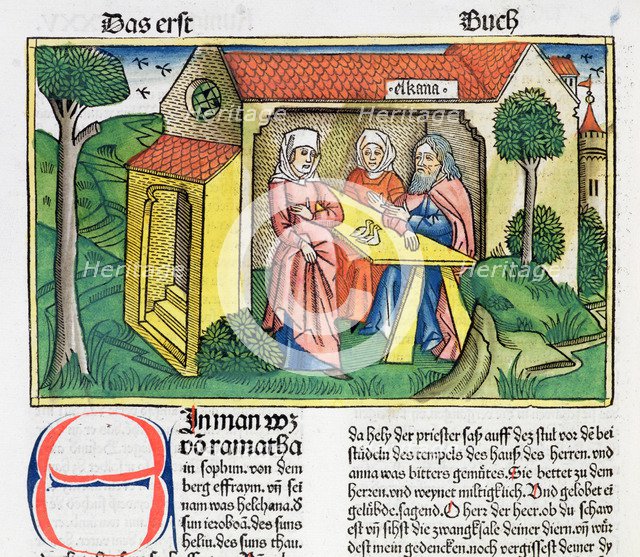 Das erst
Buch
elkana
Inman wz
vō ramatha
in sophim. von dem
berg effraym. vn̄ sei
nam was helchana. d
sun ieroboā. des suns
heliu. des suns thau.
da hely der priester saß auff dez stul vor dē bei
städeln des tempels des hauß des herren. vnd
anna was bitters gemütes. Sie bettet zu dem
herren. vnd weynet miltigklich. Und gelobet ei
gelübde. sagend. O herz der heer. ob du schaw
est vn̄ sihst die zwangksale deiner diern. vn̄ würs
dest mein gedencken. noch vergissest deiner dy
Heritage
Heritage
Heritage
Heritage
Heritage
Heritage
C